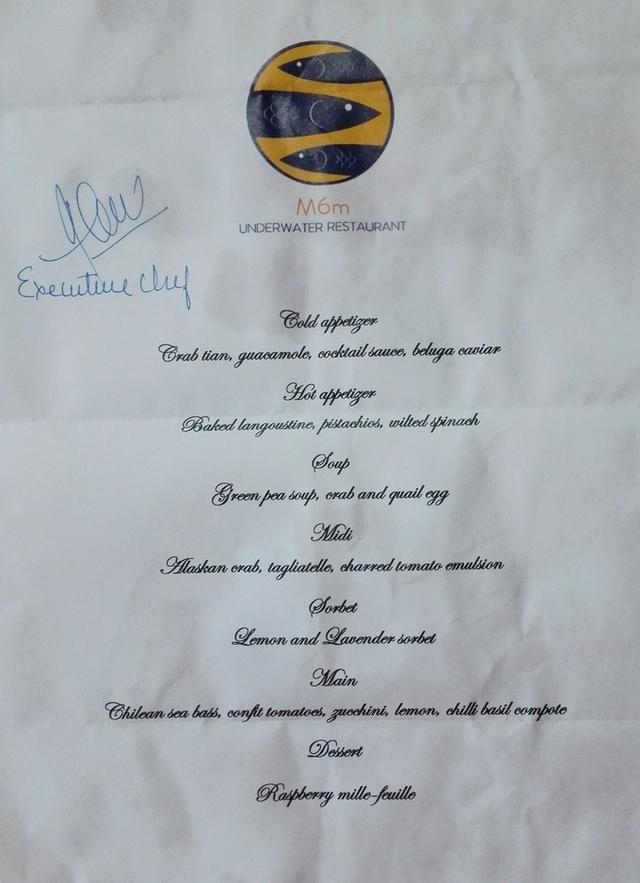 M6m
UNDERWATER RESTAURANT
Executive Chef
Cold appetizer
Crab tian, guacamole, cocktail sauce, beluga caviar
Hot appetizer
Baked langoustine, pistachios, wilted spinach
Soup
Green pea soup, crab and quail egg
Midi
Alaskan crab, tagliatelle, charred tomato emulsion
Sorbet
Lemon and Lavender sorbet
Main
Chilean sea bass, confit tomatoes, zucchini, lemon, chilli basil compote
Dessert
Raspberry mille-feuille